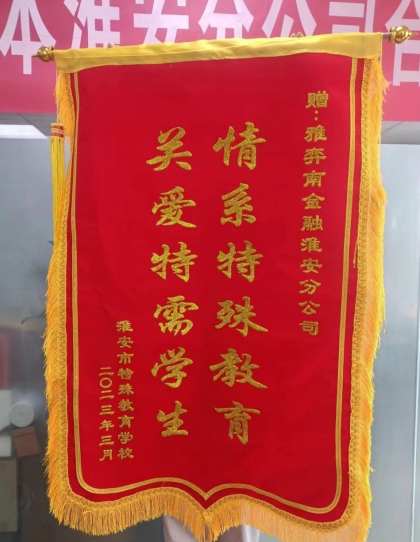 本淮安分公司合
赠：雅弈南金融淮安分公司
情系特殊教育
关爱特需学生
淮安市特殊教育学校
二〇二三年三月